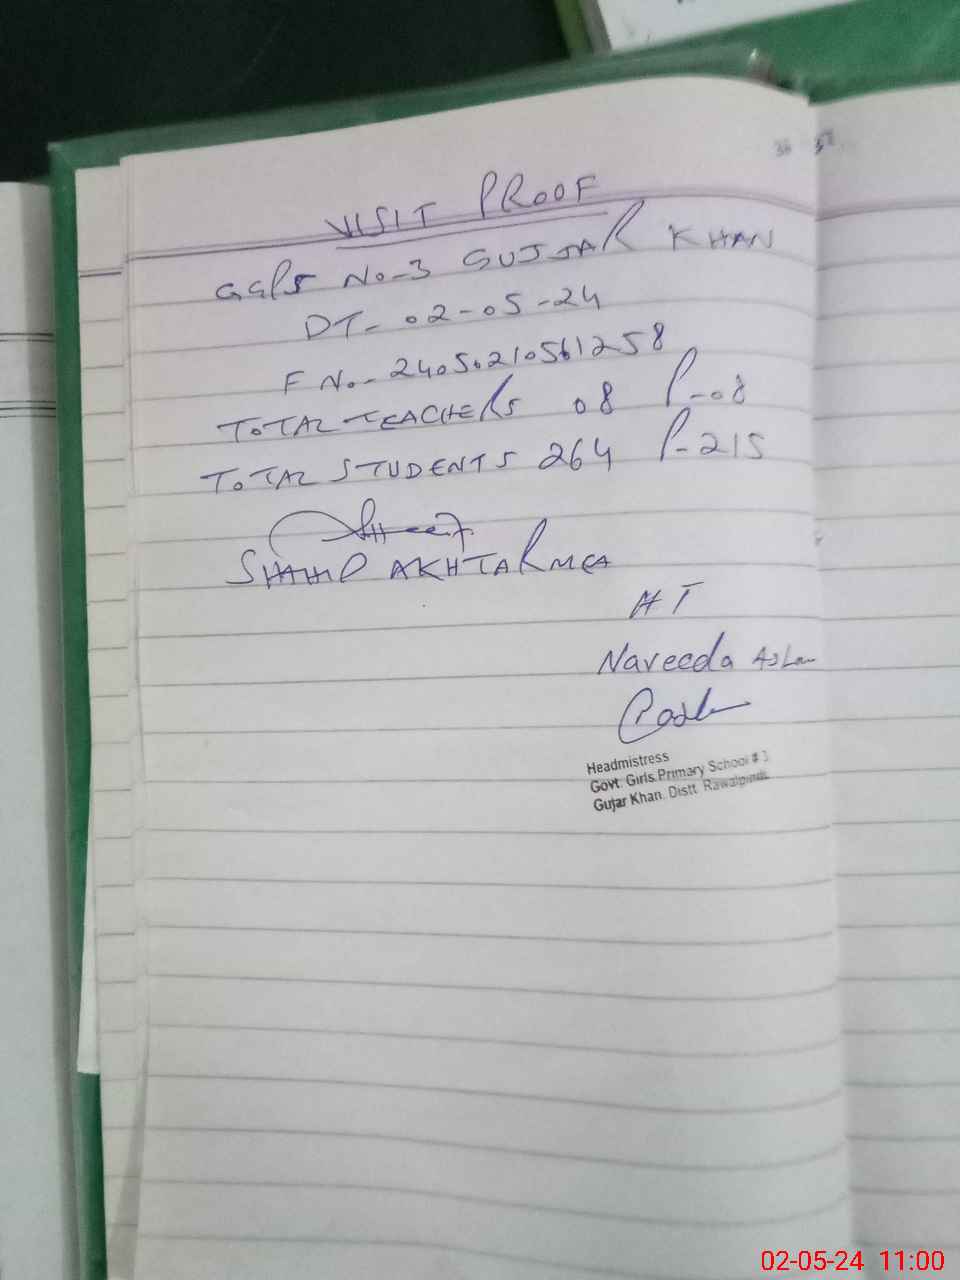 VISIT PROOF
GGPS NO-3 GUJJAR KHAN
DT- 02-05-24
F NO- 2405021056​1258
TOTAL TEACHERS 08 P-08
TOTAL STUDENTS 264 P-215
SHAHID AKHTAR MEA
HT
Naveeda Aslam
Headmistress
Govt. Girls Primary School # 3
Gujar Khan. Distt. Rawalpindi.
02-05-24 11:00